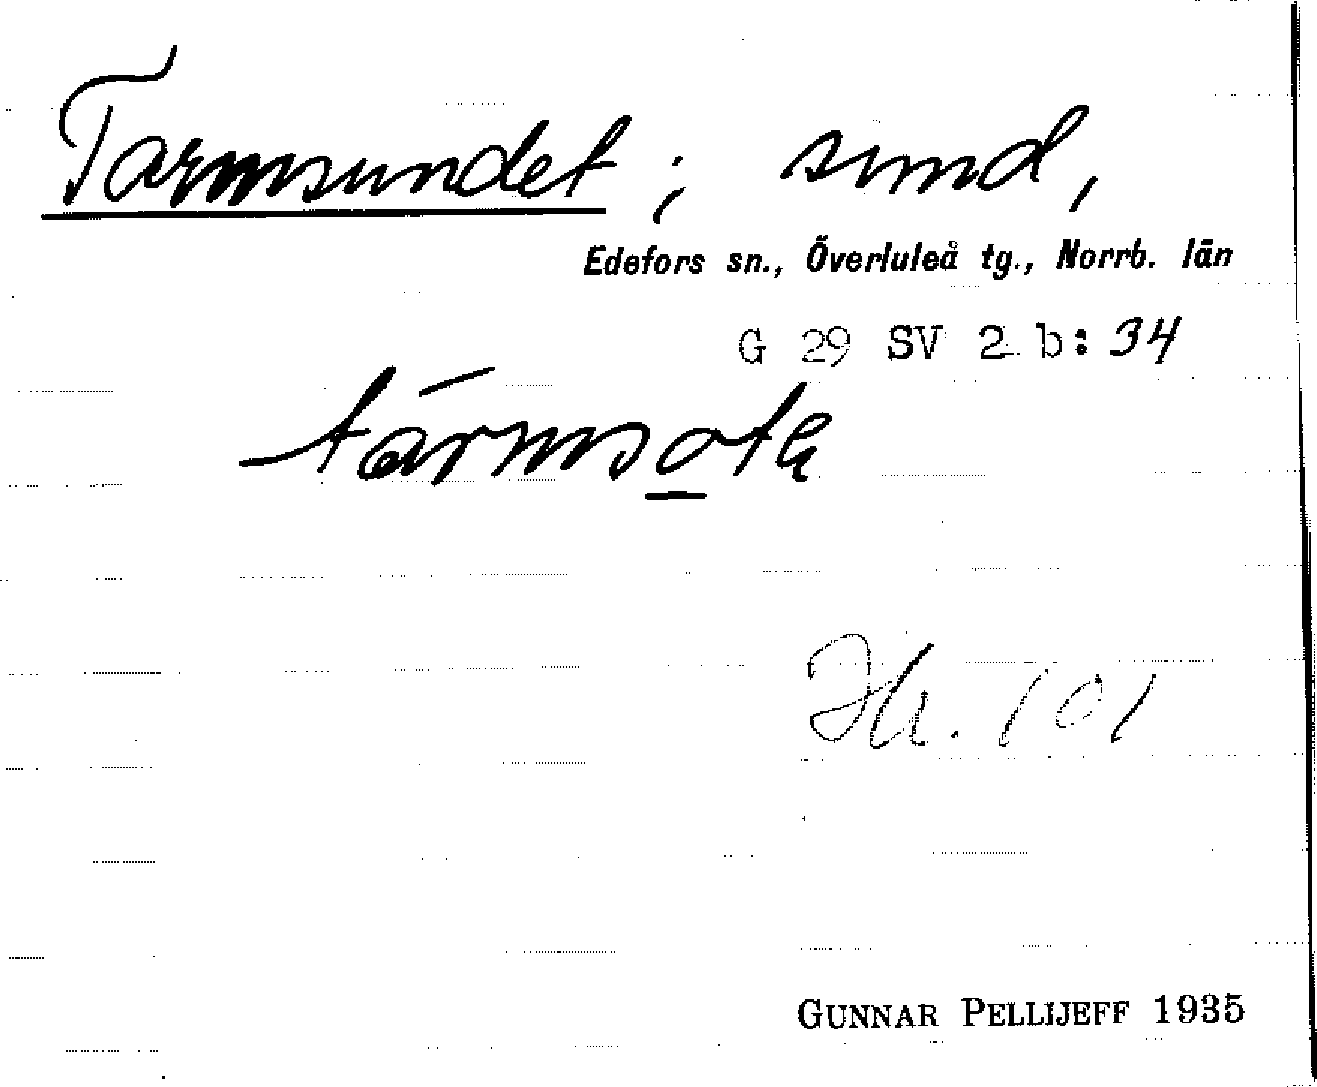 Tarmsundet ; sund,
Edefors sn., Överluleå tg., Norrb. län
G 29 SV 2 b: 34
Jh. 101
GUNNAR PELLIJEFF 1935